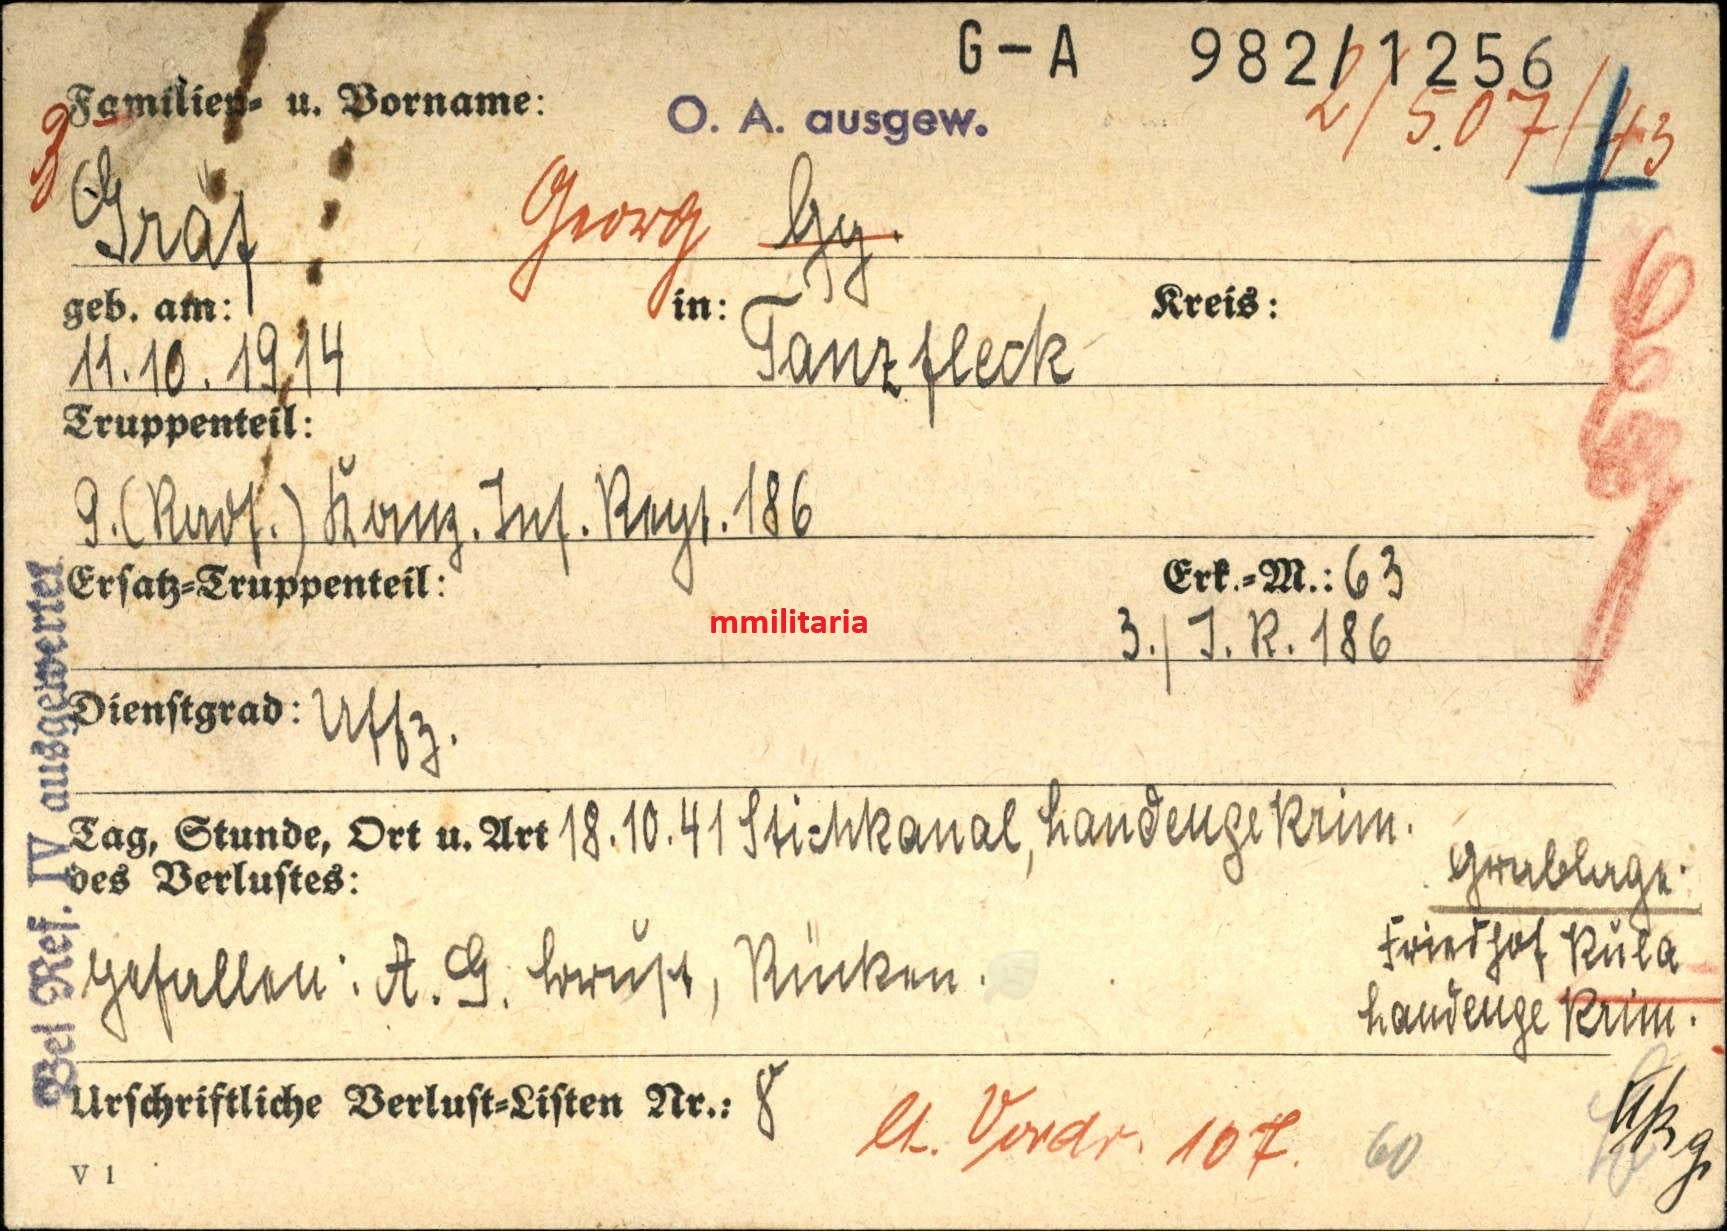 G-A 982/1256
Familien- u. Vorname:
O. A. ausgew.
2/507/43
3
Gräf Georg Gg.
geb. am: in: Kreis:
11.10.1914 Tanzfleck
Truppenteil:
9. (Radf.) Inf. Regt. 186
Ersatz-Truppenteil: Erk.-M.: 63
mmilitaria
3./ I. R. 186
Dienstgrad: Uffz.
Tag, Stunde, Ort u. Art 18.10.41 Stichkanal, Landenge Krim.
des Verlustes:
Grablage:
gefallen: A. G. Brust, Rücken.
Friedhof Kula
Landenge Krim.
Urschriftliche Verlust-Listen Nr.: 8
lt. Vordr. 107. 60
V 1
Bei Ref. IV ausgewertet